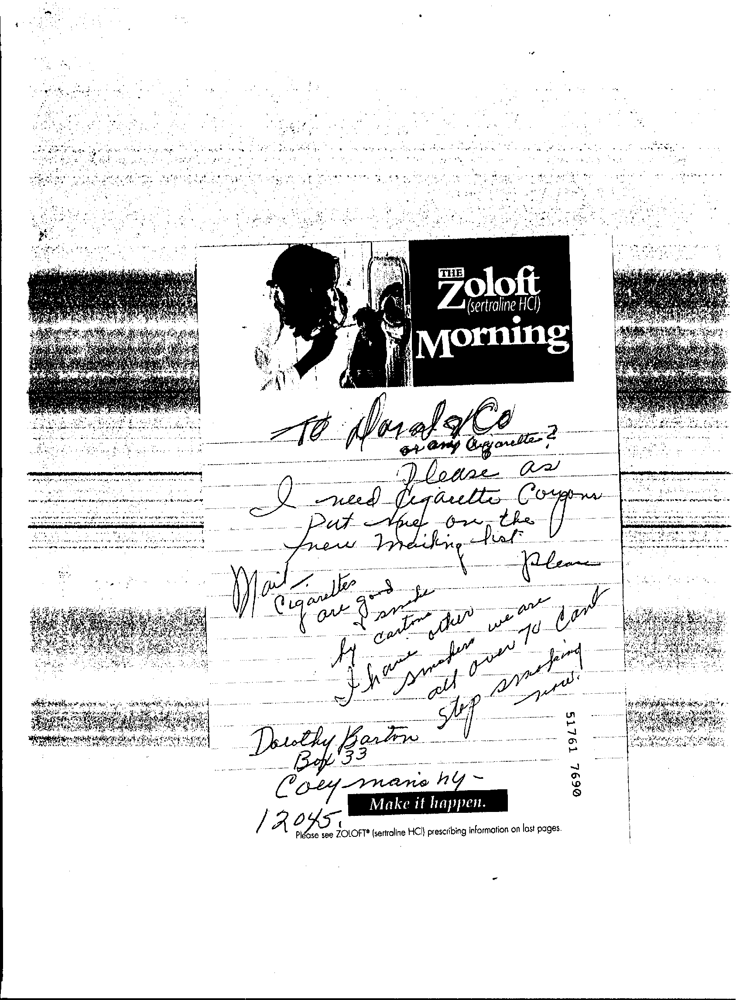 THE
Zoloft
(sertraline HCl)
Morning
TO & Co
or any Cigarette?
Please as
I need Cigarette
Put me on the
mailing list
Please
Mail
Cigarettes
are good
I smoke
by cartons
I have other
smokers we are
all over 70 Cant
stop smoking
now.
Dorothy Barton
Box 33
Coeymans ny-
12045.
Make it happen.
Please see ZOLOFT® (sertraline HCl) prescribing information on last pages.
51761 7690